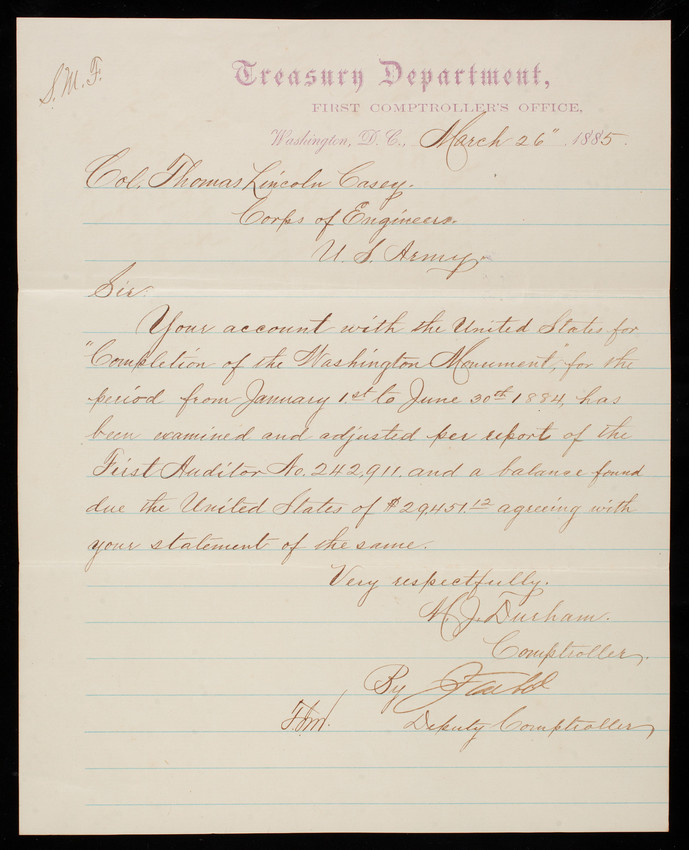 S. M. F.
Treasury Department,
FIRST COMPTROLLER'S OFFICE,
Washington, D. C., March 26" 1885.
Col. Thomas Lincoln Casey.
Corps of Engineers.
U. S. Army.
Sir.
Your account with the United States for
"Completion of the Washington Monument", for the
period from January 1.st to June 30th 1884, has
been examined and adjusted per report of the
First Auditor No. 242,911. and a balance found
due the United States of $29,451.12 agreeing with
your statement of the same.
Very respectfully.
M. J. Durham.
Comptroller.
By
Deputy Comptroller